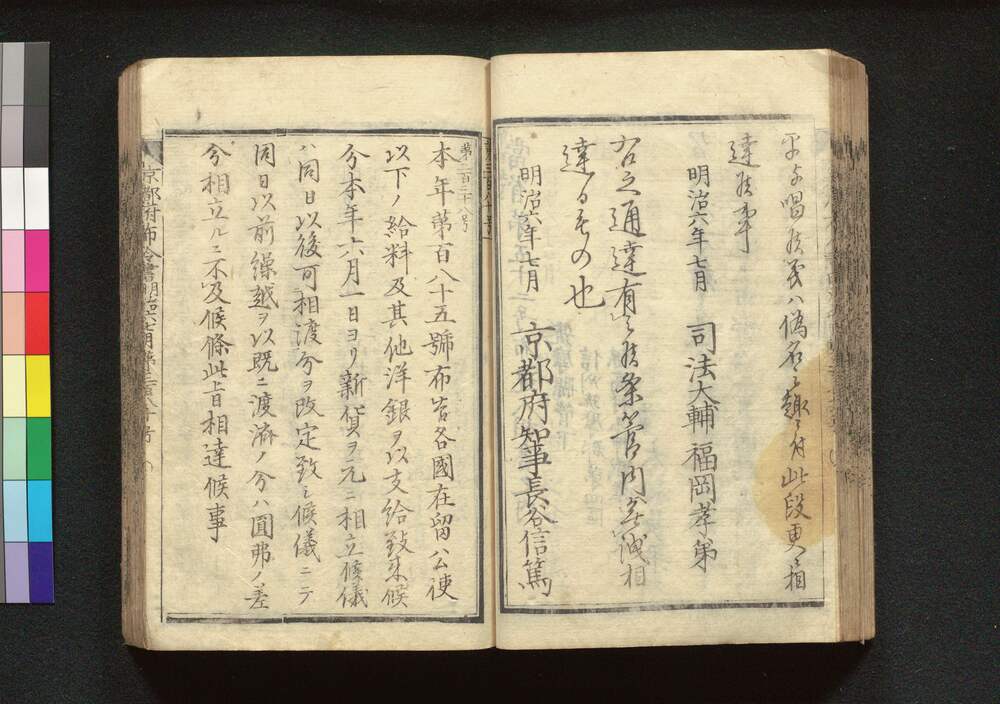 平ト唱候義ハ偽名之趣ニ付此段更ニ相
達候事
明治六年七月　司法大輔福岡孝弟
右之通達有之候条管内無洩相
達るもの也
明治六年七月　京都府知事長谷信篤
第二百二十八号
本年第百八十五號布告各國在留公使
以下ノ給料及其他洋銀ヲ以支給致来候
分本年六月一日ヨリ新貨ヲ元ニ相立候儀
ハ同日以後可相渡分ヲ改定致シ候儀ニテ
同日以前繰越ヲ以既ニ渡済ノ分ハ圓弗ノ差
分相立ルニ不及候條此旨相達候事
京都府布令書明治六年七月